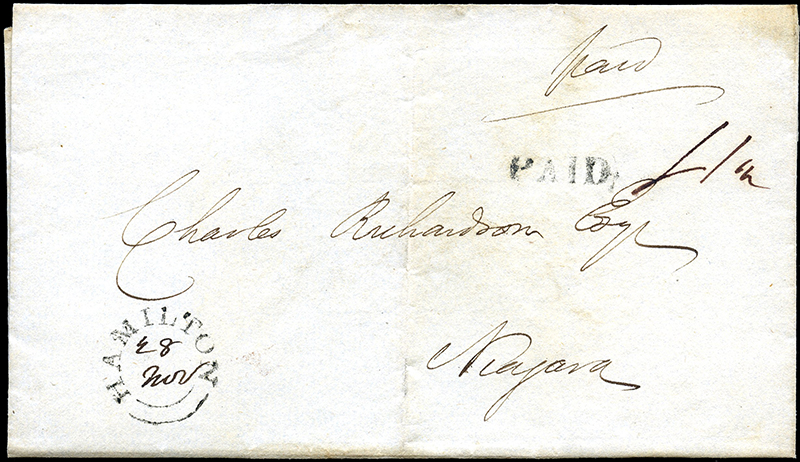 paid
PAID
Charles Richardson Esqr
Niagara
HAMILTON
28
Nov